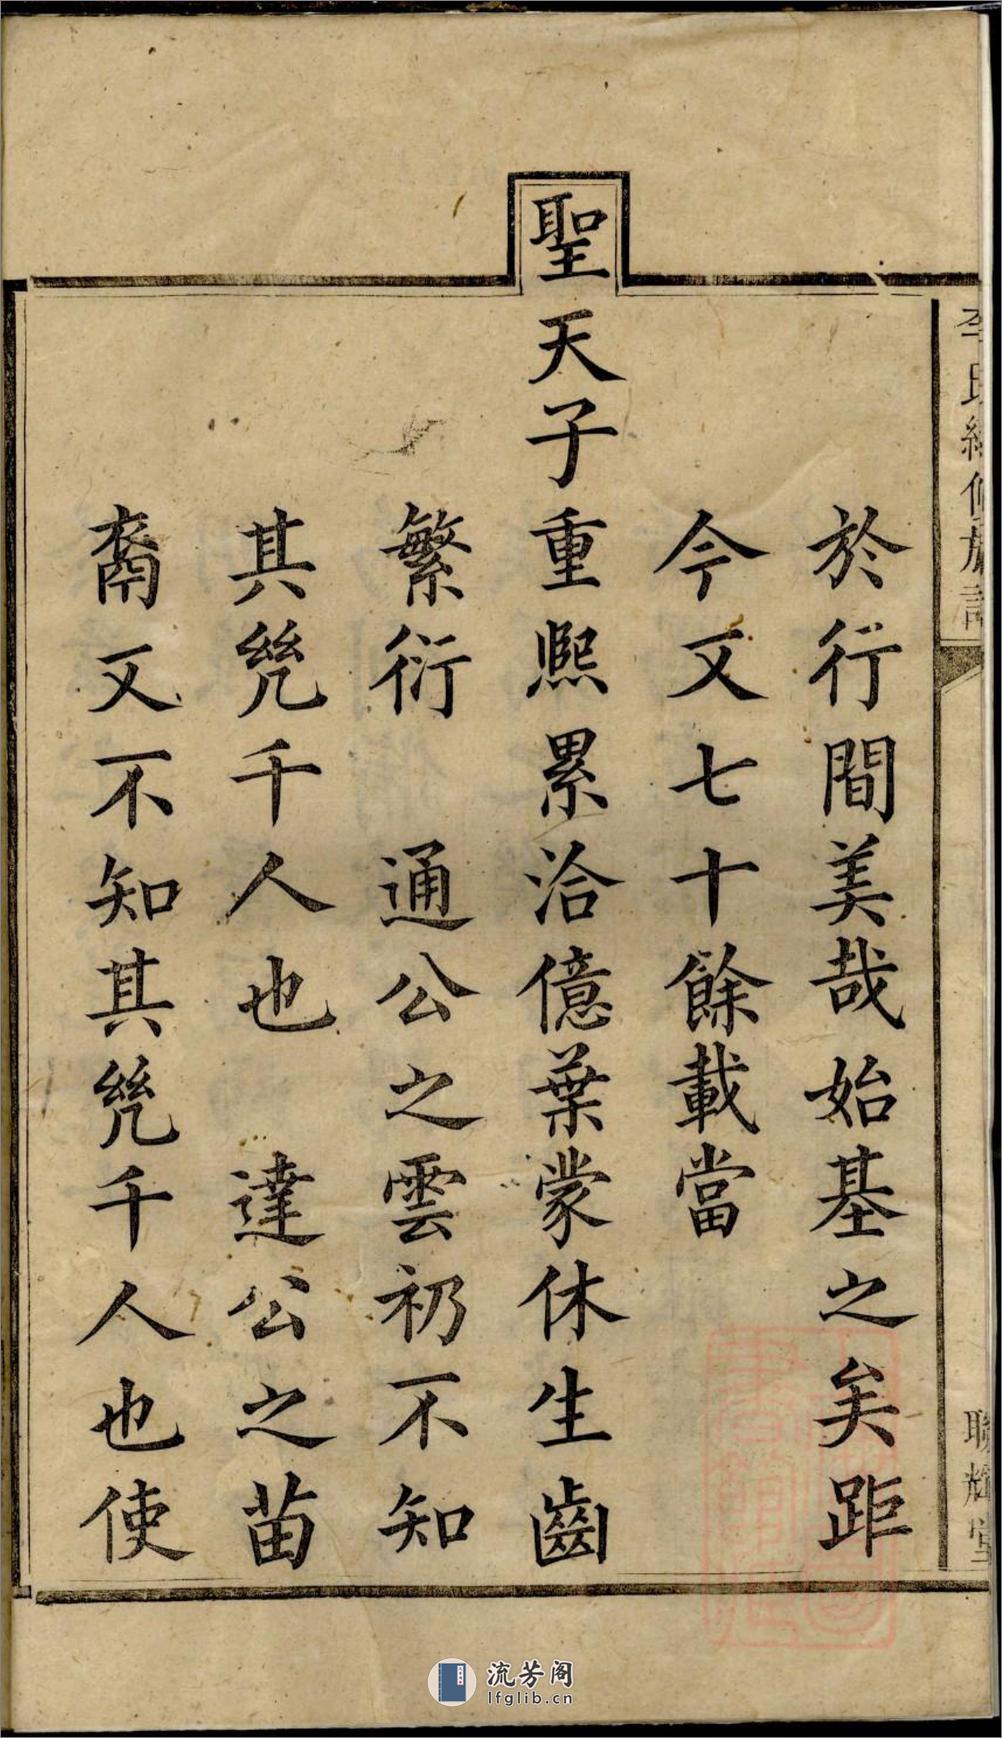 李氏續修族譜
聯輝堂
於行間美哉始基之矣距
今又七十餘載當
聖天子重熙累洽億葉蒙休生齒
繁衍 通公之雲礽不知
其凳千人也 達公之苗
裔又不知其凳千人也使
流芳阁
lfglib.cn